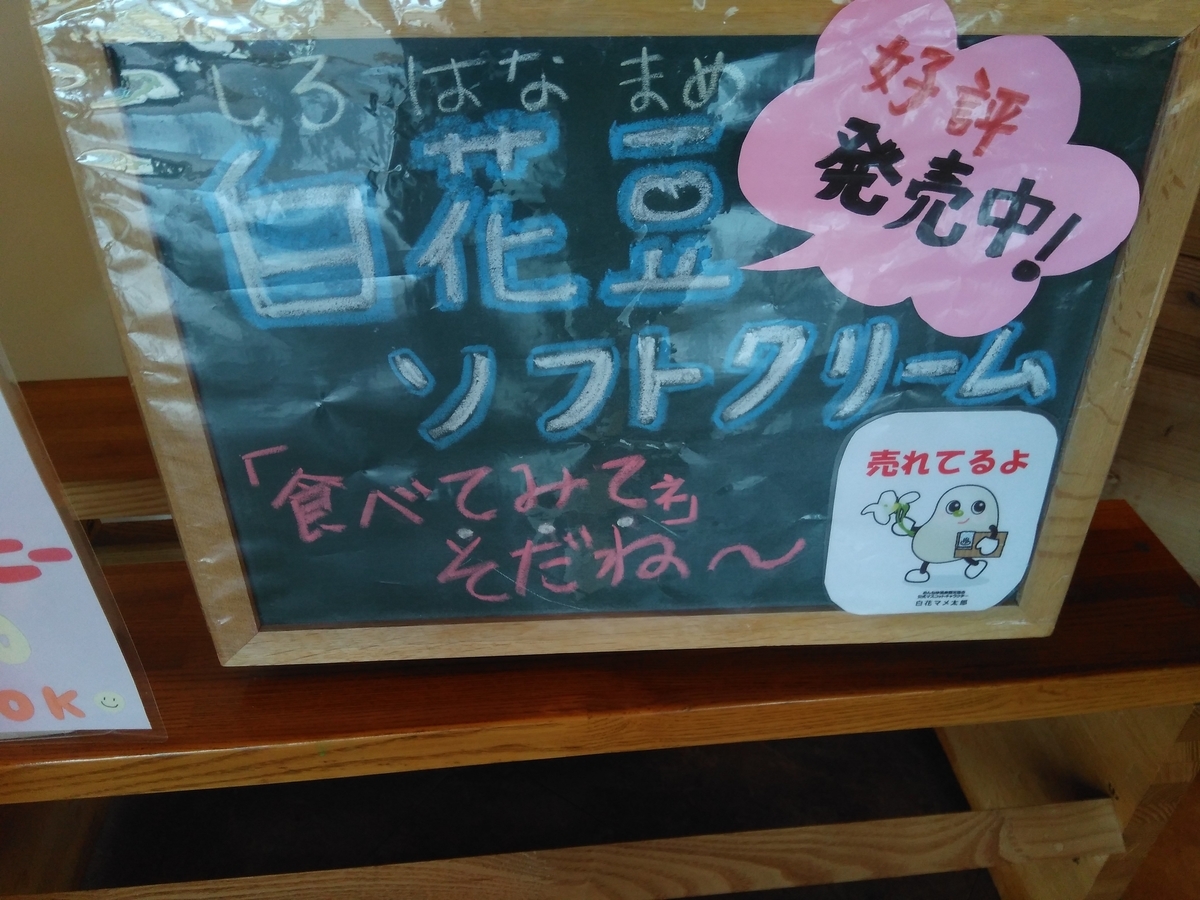 しろ はな まめ
白花豆
ソフトクリーム
好評
発売中!
「食べてみてぇ」
そだね〜
売れてるよ
白花マメ太郎
OK